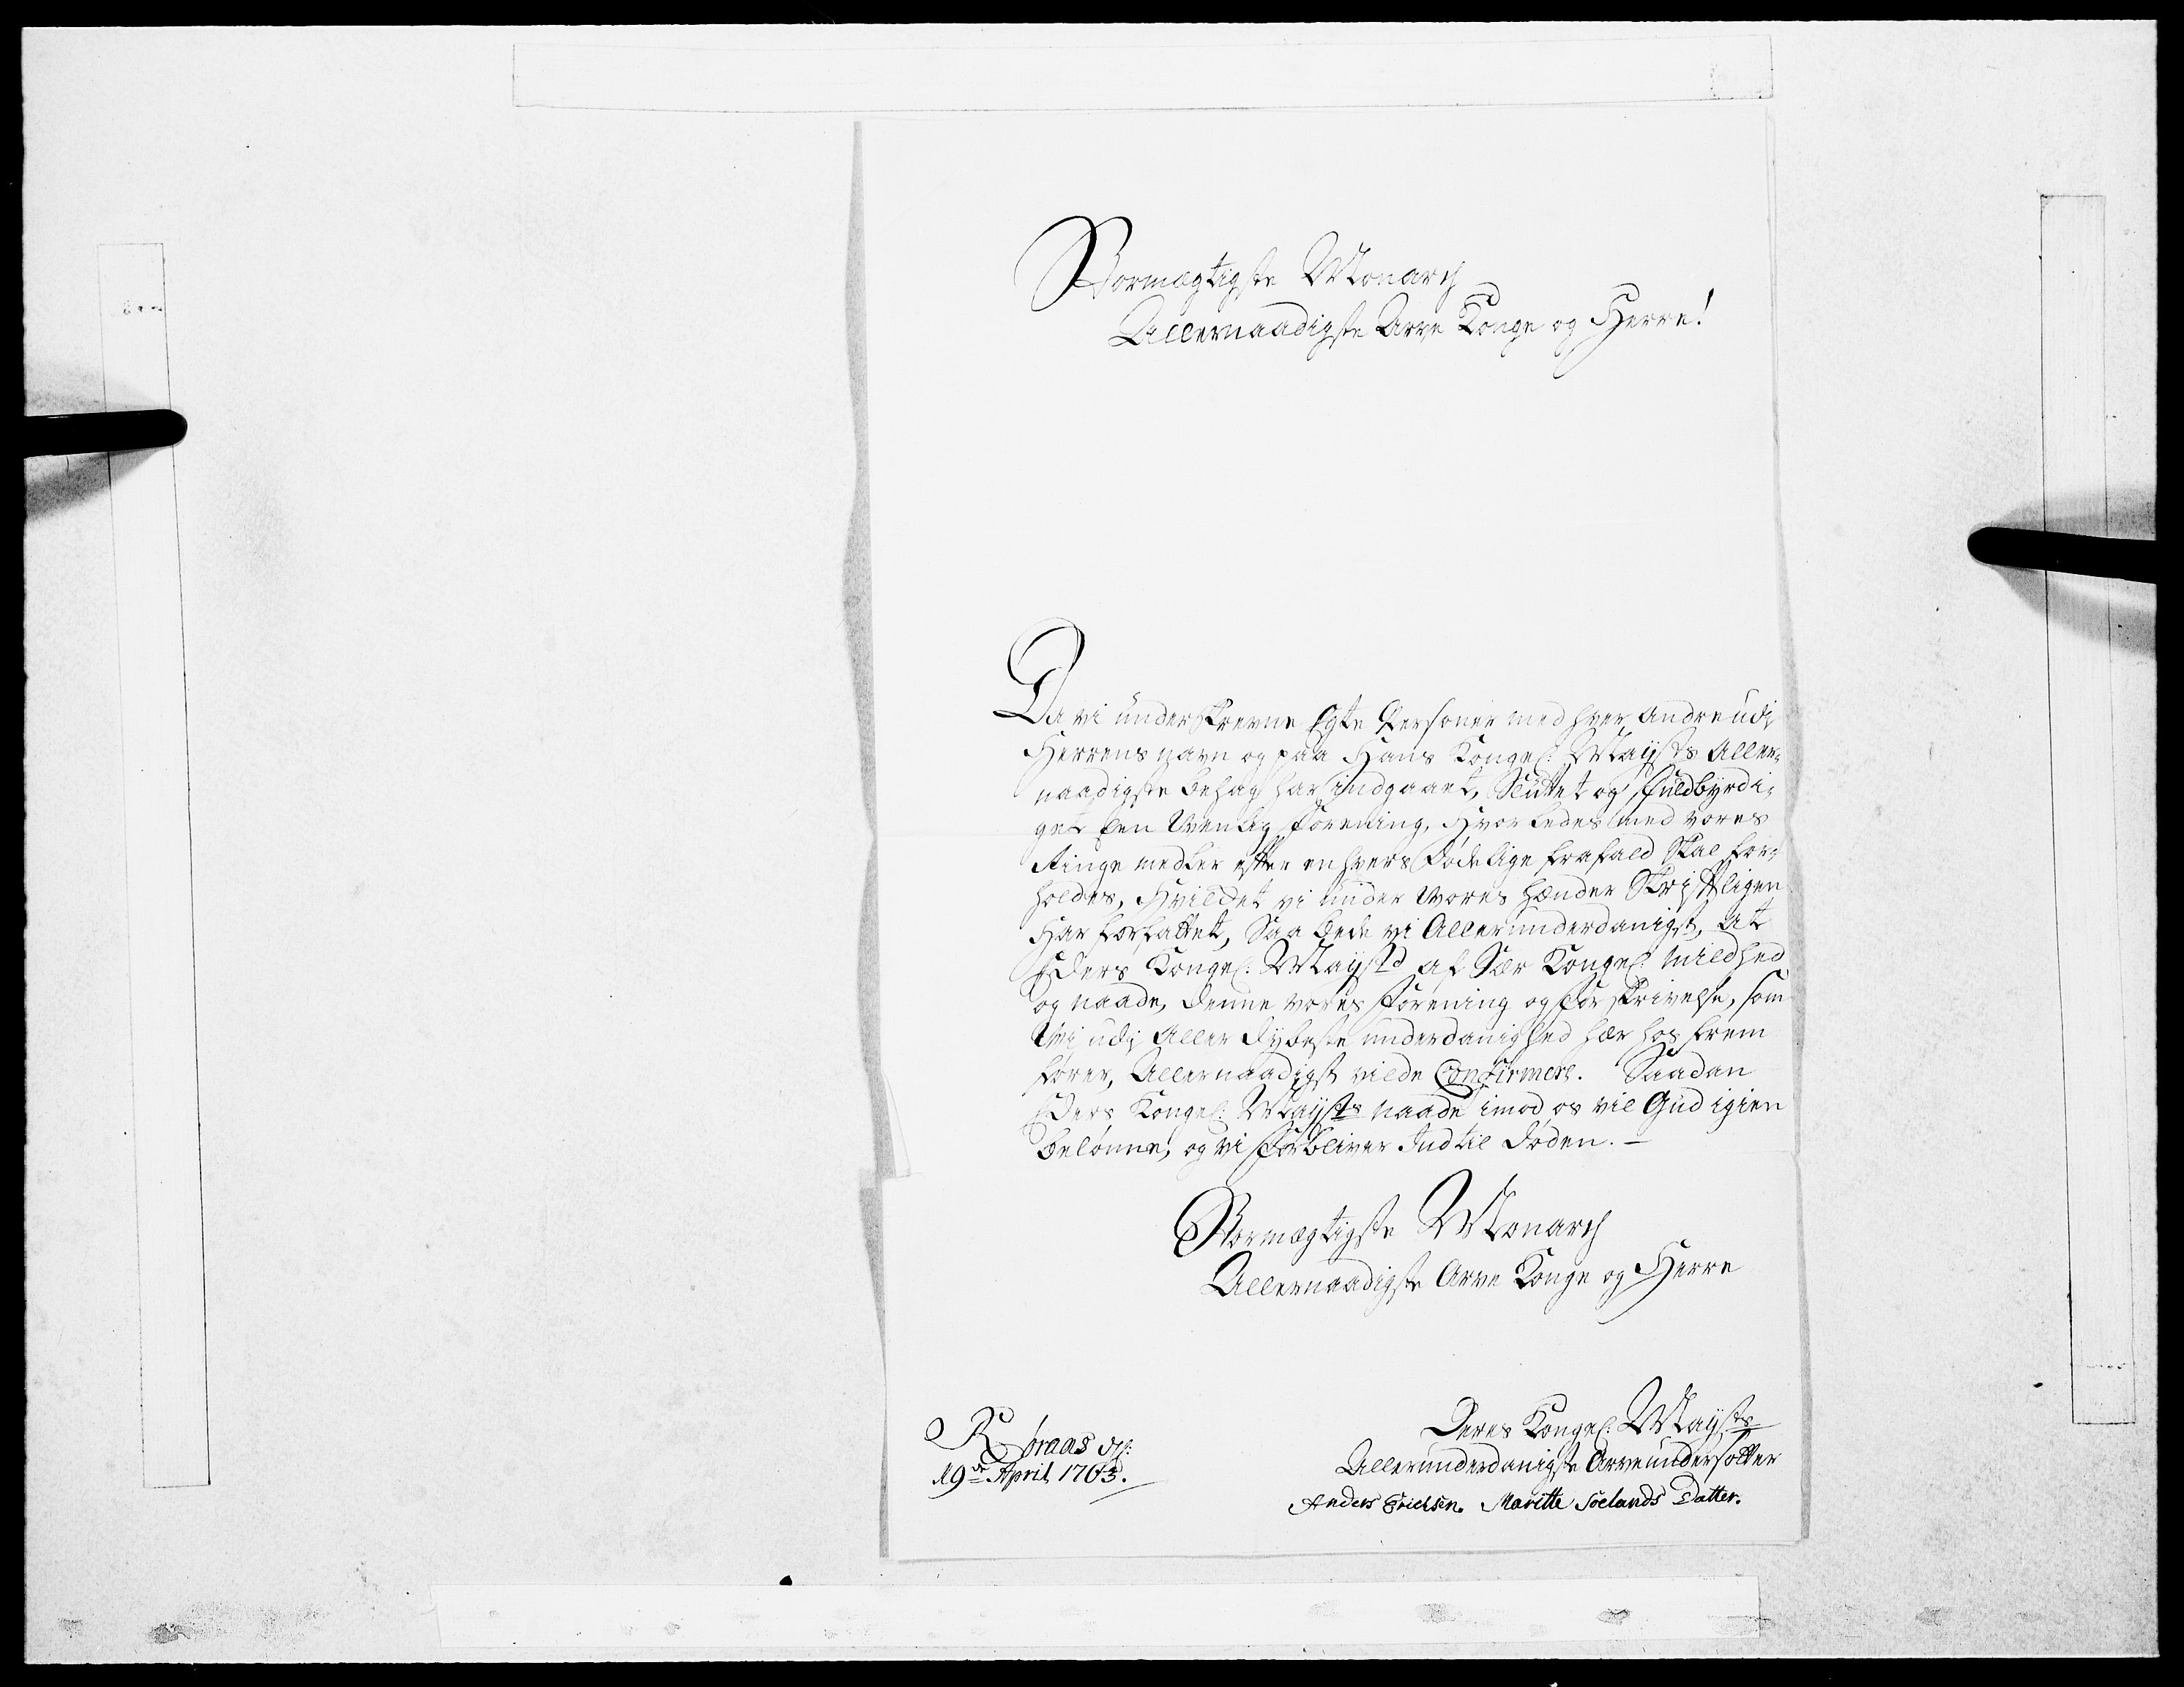 Stormægtigste Monarch
Allernaadigste Arve Konge og Herre!
Da vi underskrevne Egte Personer med hver andre udi
Herrens navn og paa Hans Kongel: Mayts Aller-
naadigste behag har indgaaet, Sluttet og fuldbyrdi-
get Een Venlig forening, Hvorledes med vores
Ringe medler efter en hvers dødelige frafald skal for-
holdes, Hvilchet vi under Vores hænder Skriftligen
Har forfattet, Saa bede vi Allerunderdanigst, at
Eders Kongel: Mayst af Sær Kongel: mildhed
og naade, denne vores forening og forskrivelse, som
Vi udi Aller dybeste underdanighed her hos frem
fører, Allernaadigst vilde Confirmere. Saadan
Eders Kongel: Mayts naade imod os vil Gud igien
belønne, og vi forbliver Indtil døden. —
Stormægtigste Monarch
Allernaadigste Arve Konge og Herre
Deres Kongel: Mayts
Røraas
Allerunderdanigste Arve undersotter
d 9de April 1763.
Anders Erichsen. Maritte Soelands Datter.